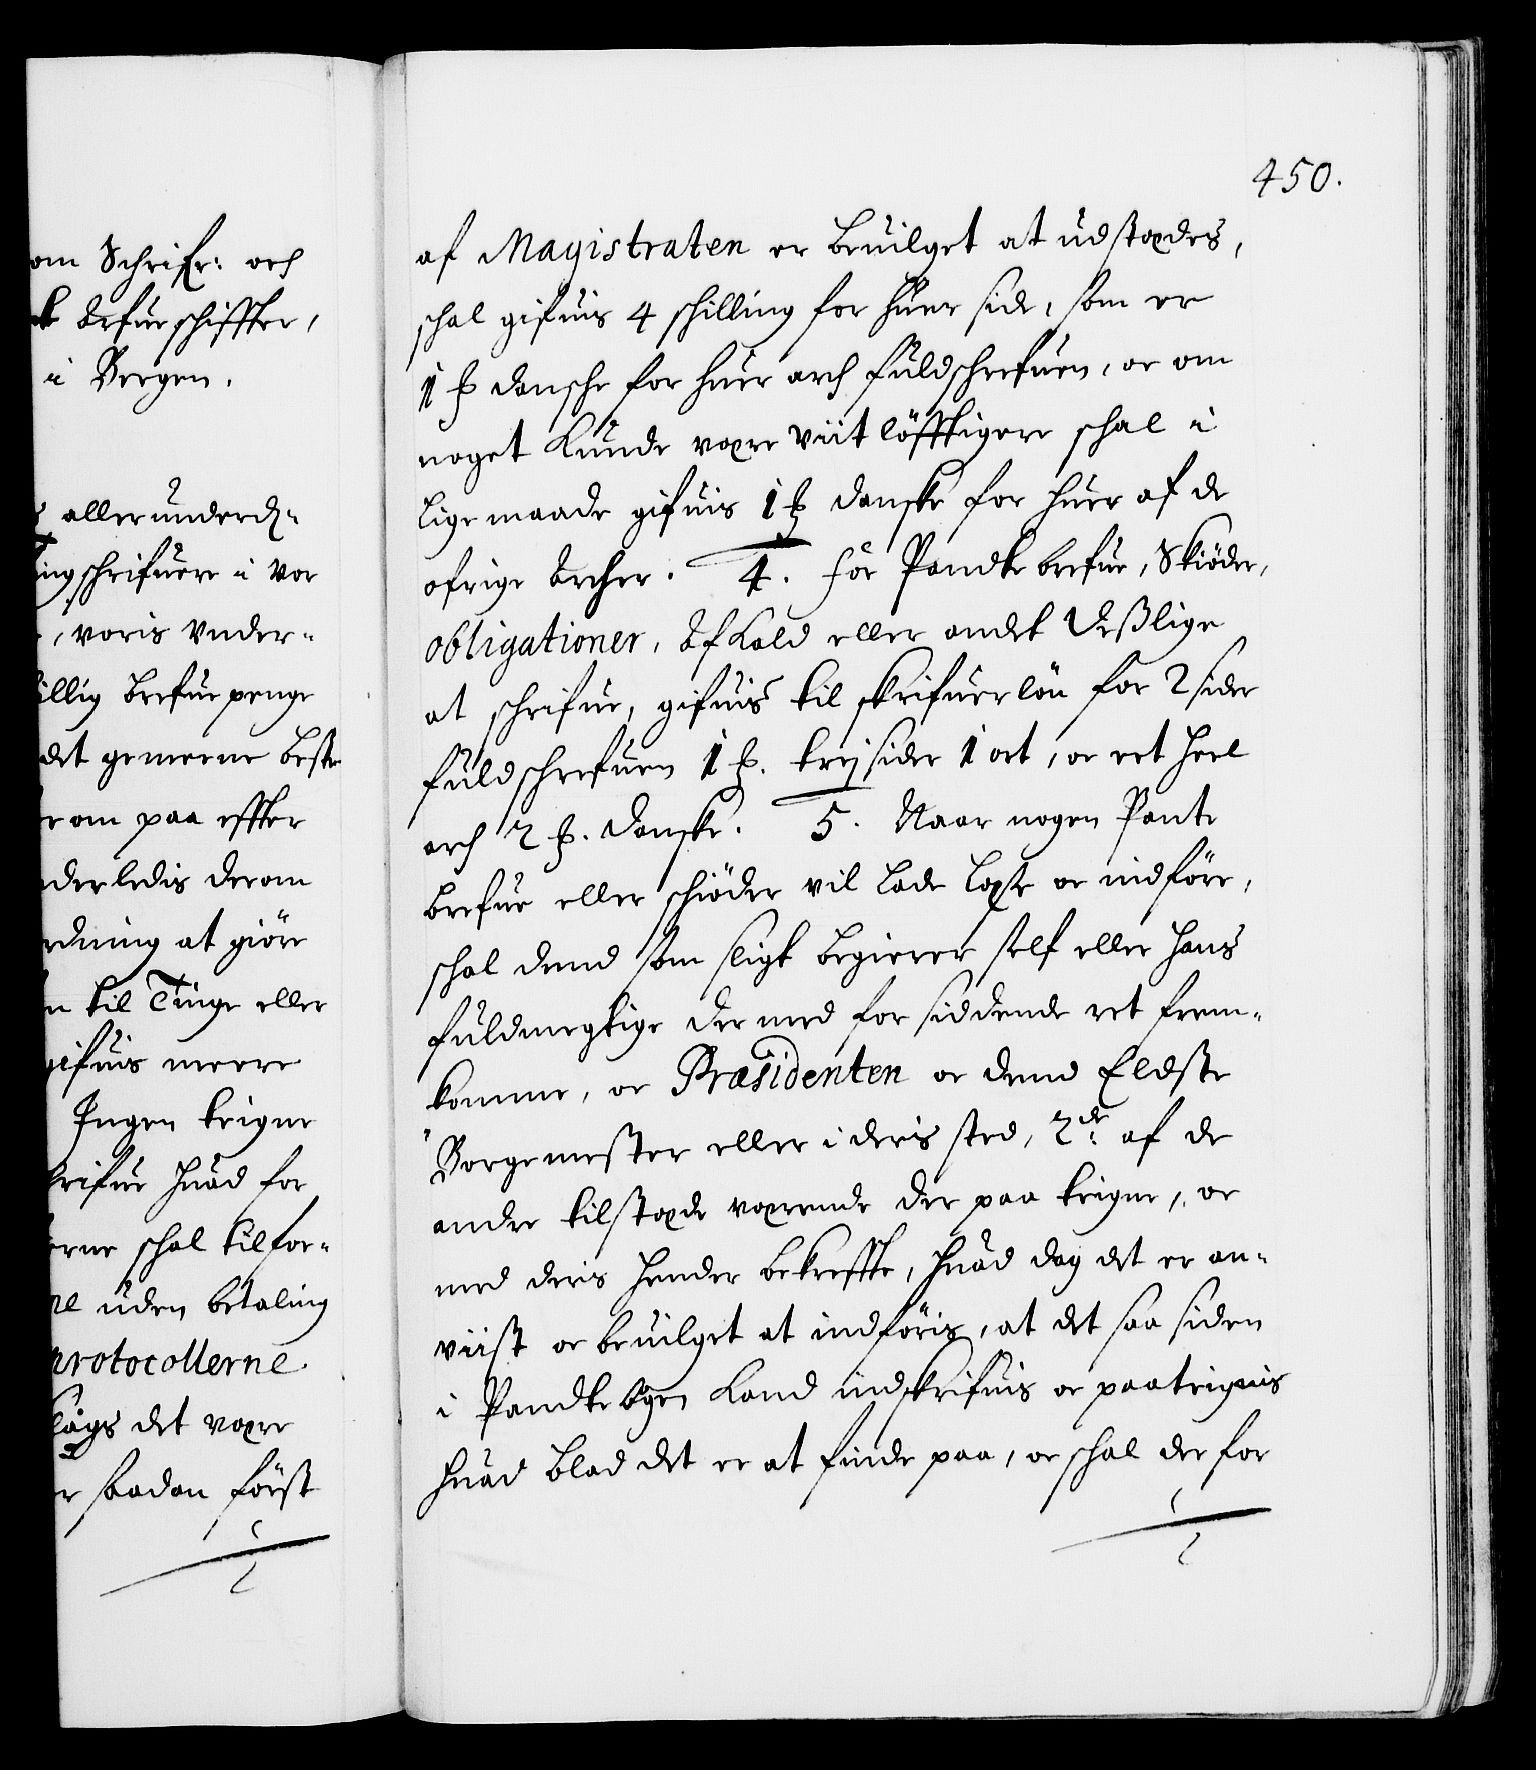 om Schrifr: och
brefue schiffter,
i Bergen.
allerunderd-
ingschrifuere i vor
, voris vnder-
billig brefue penge
det gemeene beste
er om paa effter
derledis derom
rdning at giöre
n til Tinge eller
gifuis meere
Ingen teigne
krifue huad for
erne schal tilfor-
uden betaling
protocollerne.
det være
r saadan först
450.
af Magistraten er beuilget at udstædes,
schal gifuis 4 schilling for huer side, som er
1 ℔ dansche for huer arch fuldschrefuen, oc om
noget kunde være viitlöfftigere schal i
lige maade gifuis 1 ℔ danske for huer af de
ofrige Archer. 4. För Pandte brefue, Skiöder,
obligationer, Afkald eller andet deßlige
at schrifue, gifuis til skrifuerlön for 2 sider
fuldschrefuen 1 ℔. trej sider 1 ort, oc eet heel
arch 2 ℔. danske. 5. Naar nogen Pante
brefue eller schiöder vil lade læse oc indföre,
schal dend som sligt begierer self eller hans
fuldmegtige der med for siddende ret frem-
komme, oc Præsidenten oc dend Eldste
Borgemester eller i deris sted, 2de: af de
andre tilstæde værende der paa teigne, oc
med deris hender bekreffte, huad dag det er an-
viist oc beuilget at indföris, at det saa siden
i Pandte bogen kand indskrifuis oc paateignis
huad blad det er at finde paa, oc schal der for